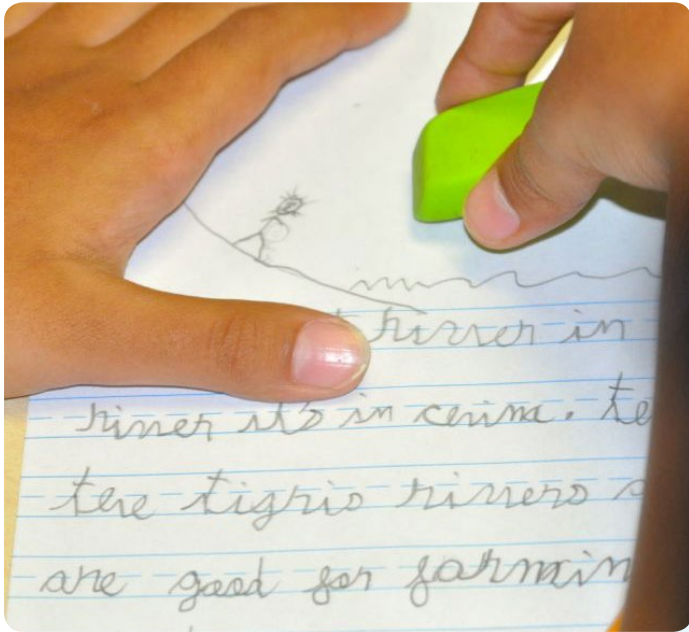 rivver in
rivver it's in cerina. te
tere tigris rivvers
are good for farmin